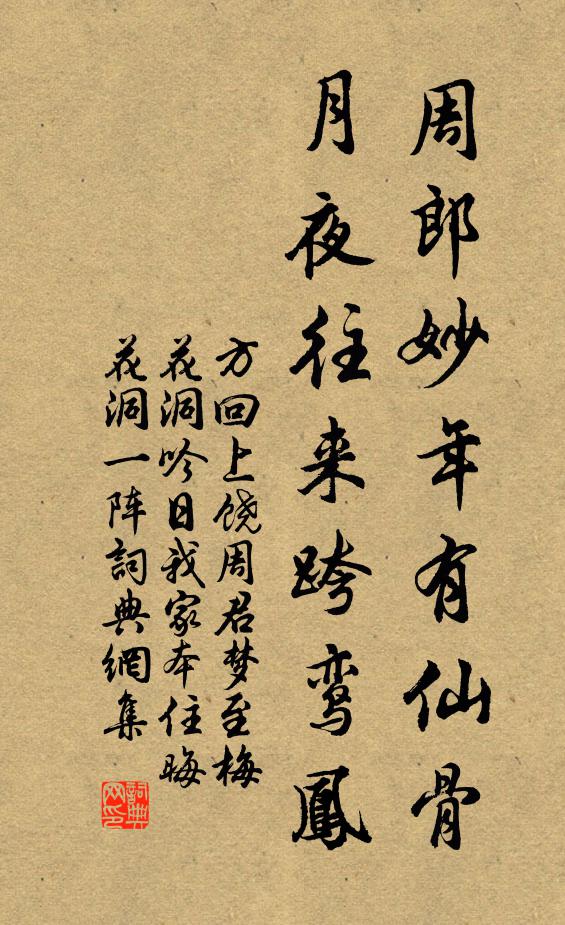 周郎妙年有仙骨
月夜往来跨鸾鳳
方回上饶周君梦至梅
花洞吟日我家本住晦
花洞一阵詞典網集
詞典网印